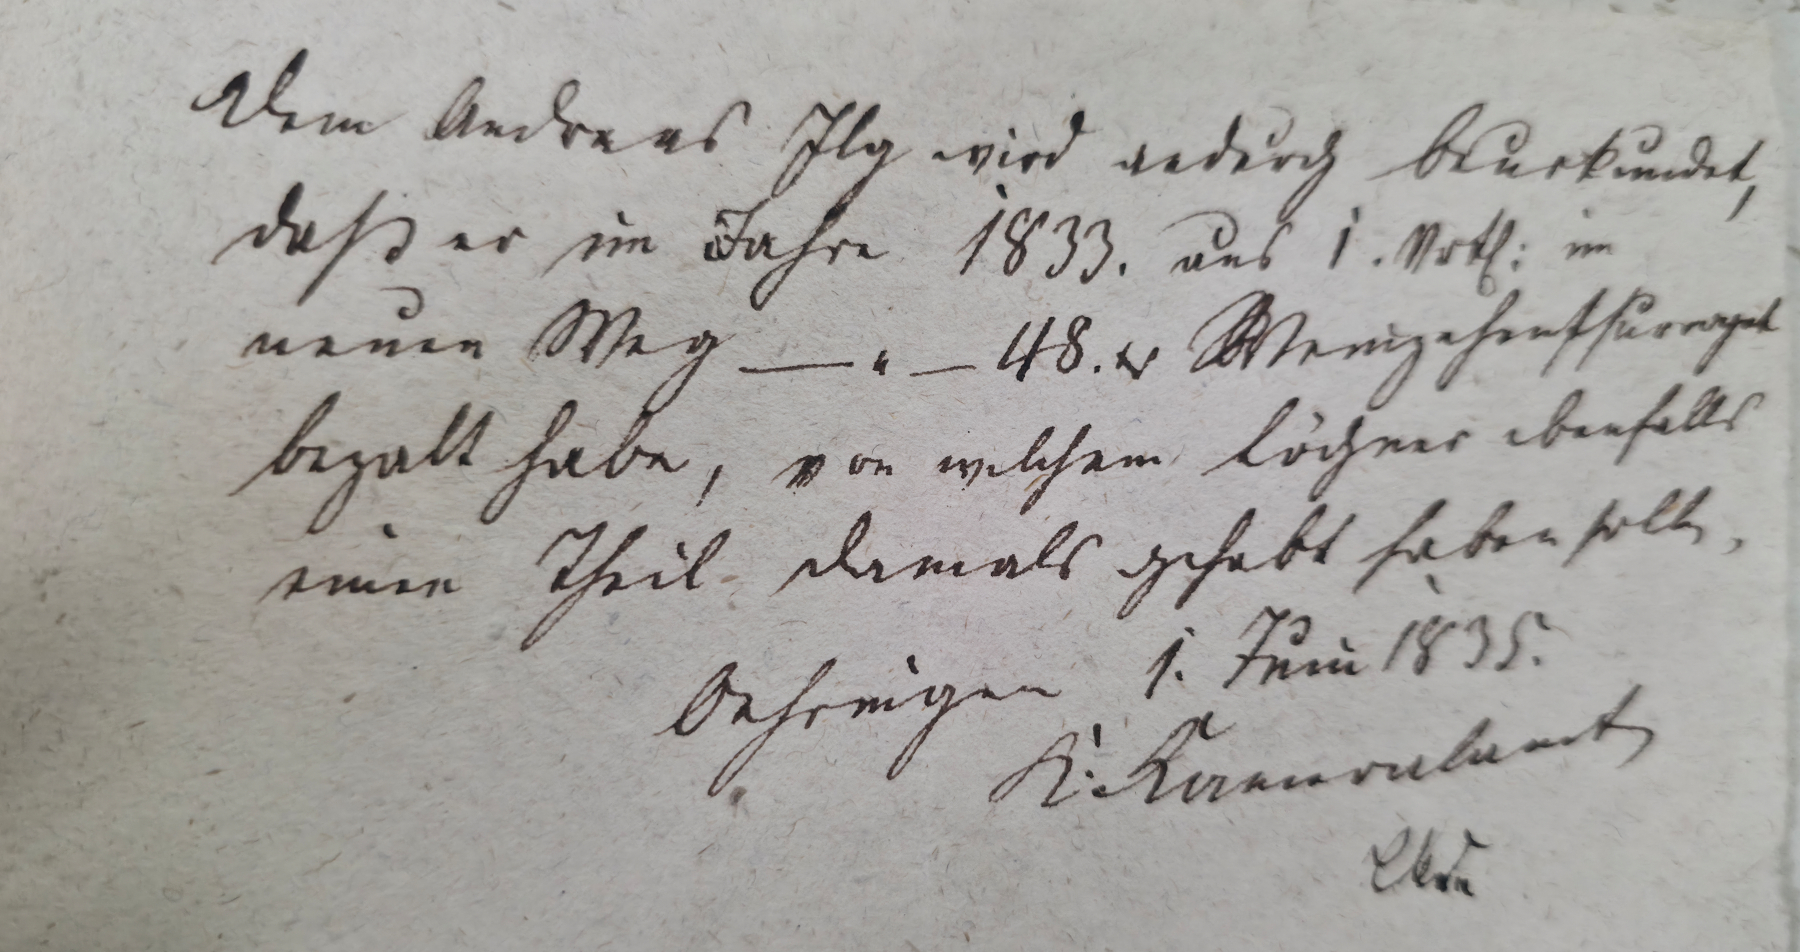 Dem Andreas Ilg wird andurch beurkundet,
daß er im Jahre 1833. aus 1. Vrtl: im
neuen Weg — " — 48. xr Weinzehentsurrogat
bezalt habe, von welchem Löchner ebenfalls
einen Theil damals gehabt haben solle.
Oehringen 1. Juni 1835.
K. Kameralamt